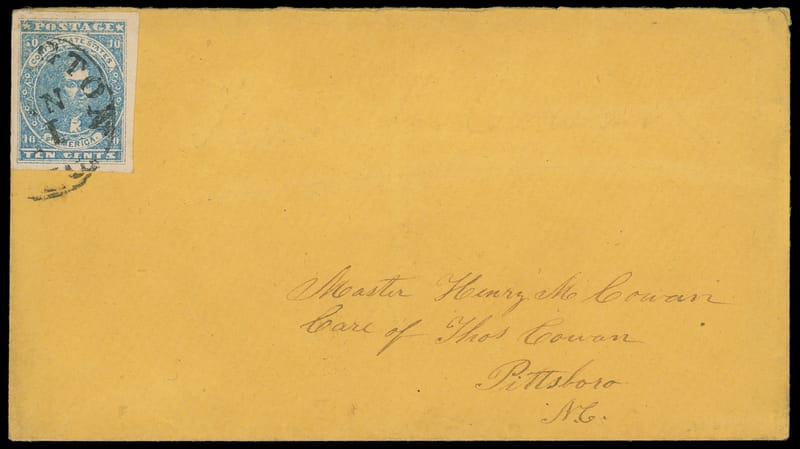 POSTAGE
CONFEDERATE STATES
10 10
OF AMERICA
10 10
TEN CENTS
Master Henry M Cowan
Care of Thos Cowan
Pittsboro
N.C.